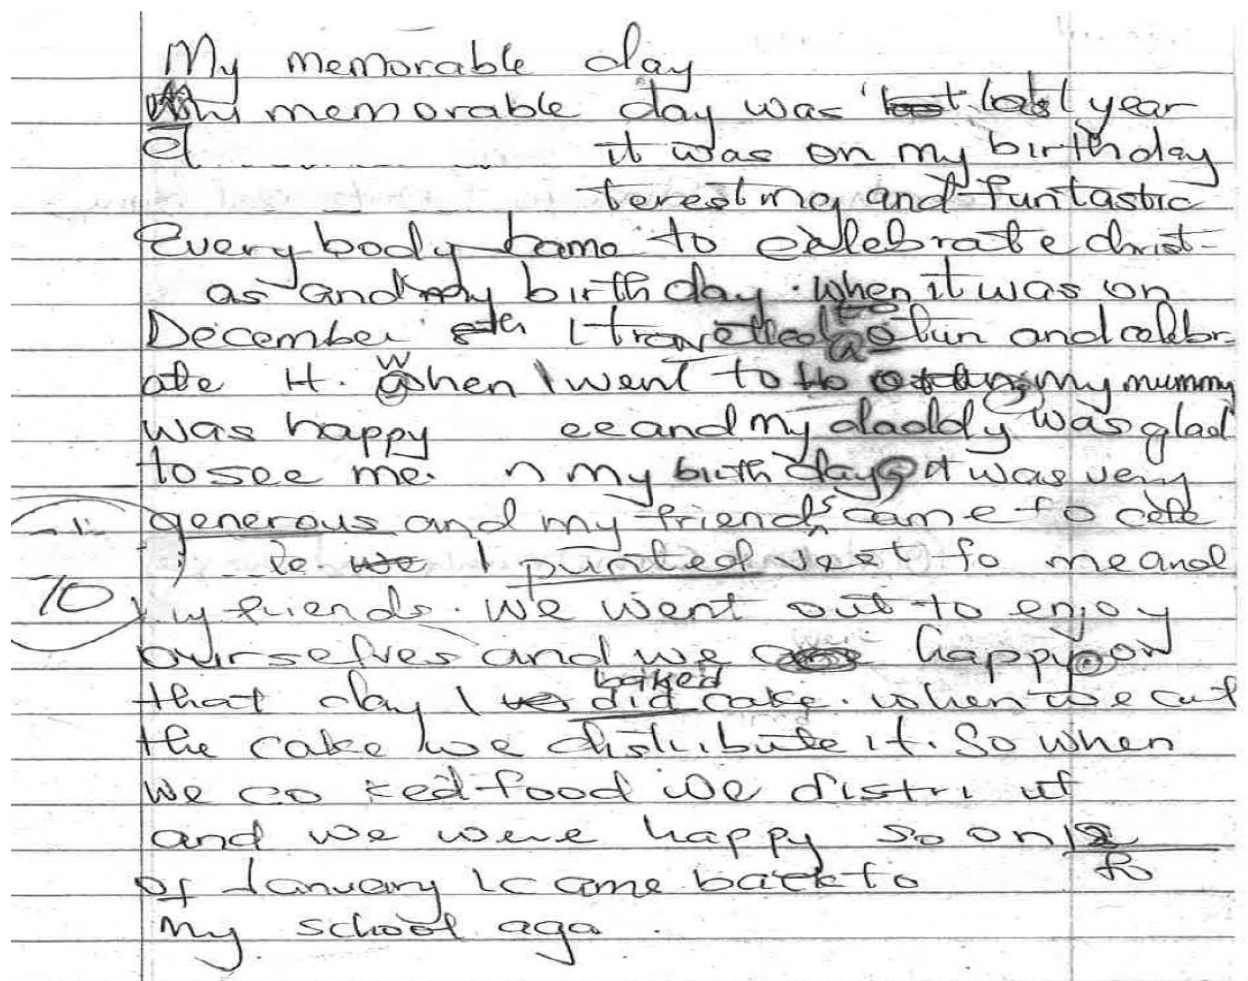 My memorable day
My memorable day was last year
it was on my birthday
teresting and funtastic
Everybody came to celebrate christ-
as and my birthday. when it was on
December I travelled to and celebr-
ate it. when I went to my mummy
was happy and my daddy was glad
to see me. n my birth day it was very
generous and my friends came to cele
I me and
y friends. We went out to enjoy
ourselves and we happy on
that day I did baked cake. when we cut
the cake we distribute it. So when
we co ked food we distri ut
and we were happy so on 12
of January I came back to
my school aga
10